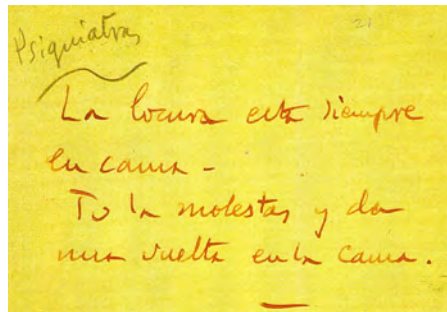 Psiquiatras
21
La locura esta siempre
en cama -
Tu la molestas y da
una vuelta en la cama.